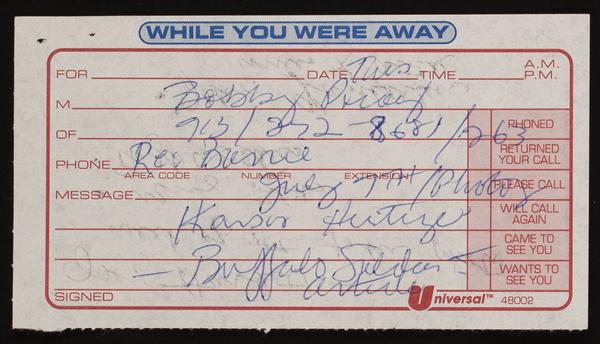 WHILE YOU WERE AWAY
FOR DATE Tues TIME A.M. P.M.
M Bobby
OF 913/ 272 8681/263
PHONED
RETURNED YOUR CALL
PHONE Res
AREA CODE NUMBER EXTENSION
PLEASE CALL
MESSAGE July 7th/photos
WILL CALL AGAIN
Kansas Heritage
CAME TO SEE YOU
— Buffalo Soldier —
WANTS TO SEE YOU
article
SIGNED Universal™ 48002